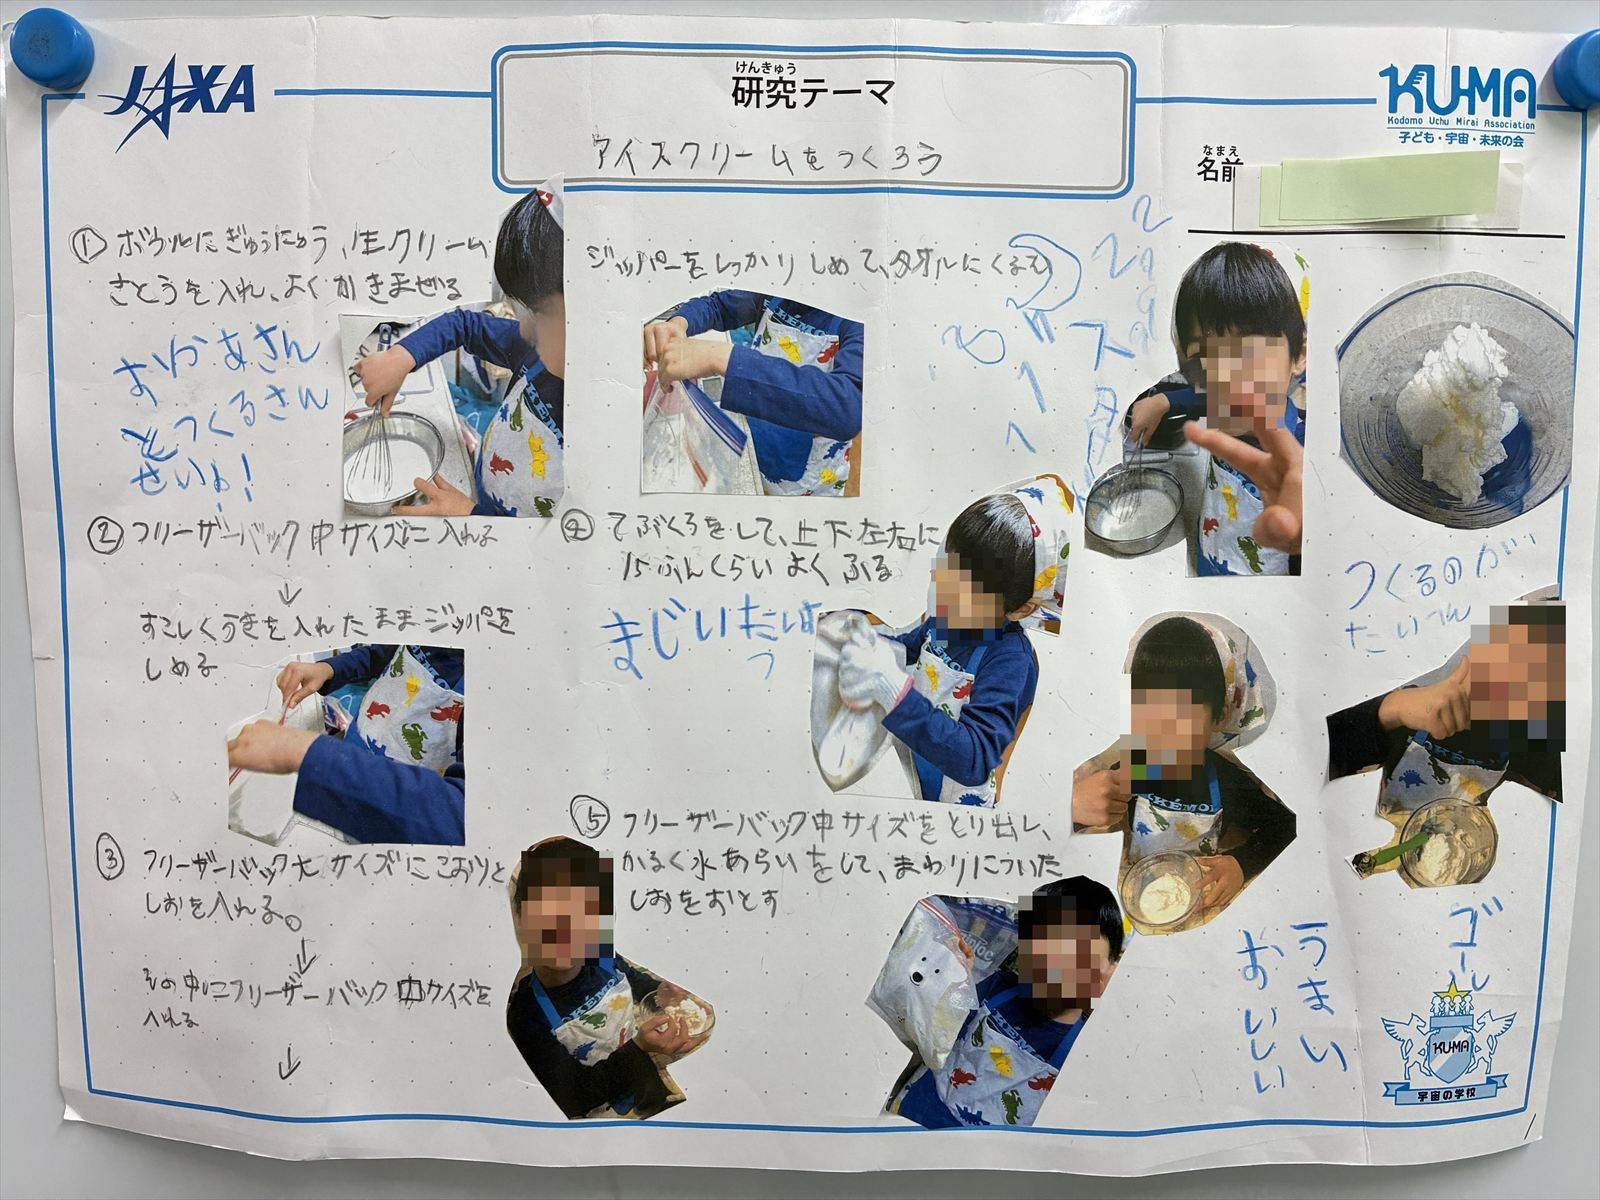 JAXA
けんきゅう
研究テーマ
アイスクリームをつくろう
KU-MA
Kodomo Uchu Mirai Association
子ども・宇宙・未来の会
なまえ
名前
① ボウルにぎゅうにゅう、生クリーム
さとうを入れ、よくかきまぜる
おかあさん
とつくるさん
せいよ!
② フリーザーバック中サイズに入れる
↓
すこしくうきを入れたままジッパを
しめる
③ フリーザーバック大サイズにこおりと
しおを入れる。
↓
その中にフリーザーバック中サイズを
入れる
↓
ジッパーをしっかりしめて、タオルにくるむ
④ てぶくろをして、上下左右に
15ふんくらいよくふる
まじいたい
⑤ フリーザーバック中サイズをとり出し、
かるく水あらいをして、まわりについた
しおをおとす
スタート
つくるのが
たいへん
うまい
おいしい
ゴール
KU-MA
宇宙の学校